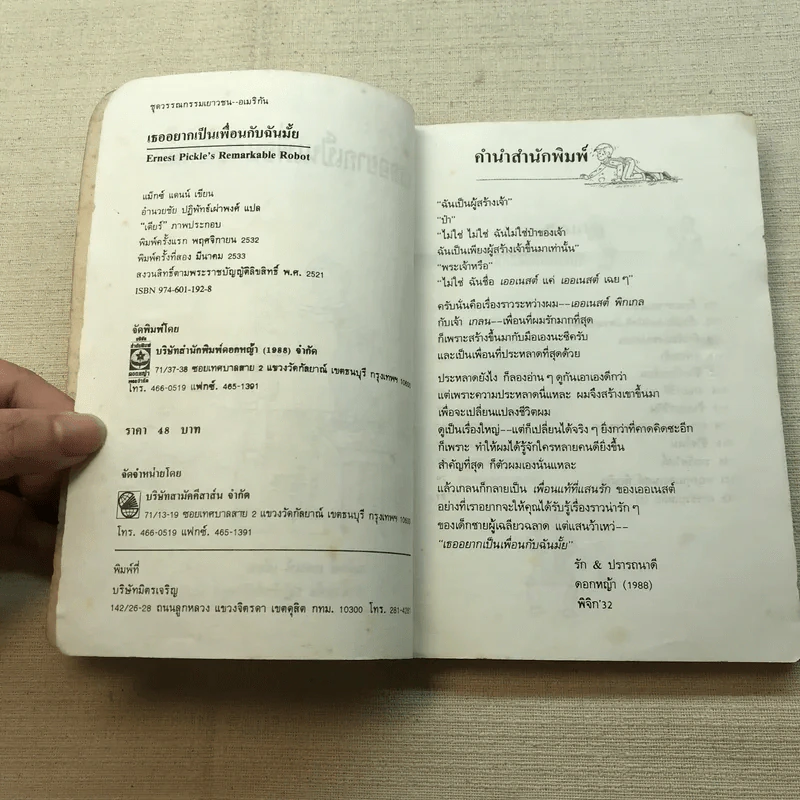 ชุดวรรณกรรมเยาวชน--อเมริกัน
เธออยากเป็นเพื่อนกับฉันมั้ย
Ernest Pickle's Remarkable Robot
แม็กซ์ แดนน์ เขียน
อำนวยชัย ปฏิพัทธ์เผ่าพงศ์ แปล
"เตียร์" ภาพประกอบ
พิมพ์ครั้งแรก พฤศจิกายน 2532
พิมพ์ครั้งที่สอง มีนาคม 2533
สงวนสิทธิ์ตามพระราชบัญญัติลิขสิทธิ์ พ.ศ. 2521
ISBN 974-601-192-8
จัดพิมพ์โดย
บริษัทสำนักพิมพ์ดอกหญ้า (1988) จำกัด
71/37-38 ซอยเทศบาลสาย 2 แขวงวัดกัลยาณ์ เขตธนบุรี กรุงเทพฯ 10600
โทร. 466-0519 แฟกซ์. 465-1391
ราคา 48 บาท
จัดจำหน่ายโดย
บริษัทสามัคคีสาส์น จำกัด
71/13-19 ซอยเทศบาลสาย 2 แขวงวัดกัลยาณ์ เขตธนบุรี กรุงเทพฯ 10600
โทร. 466-0519 แฟกซ์. 465-1391
พิมพ์ที่
บริษัทมิตรเจริญ
142/26-28 ถนนลูกหลวง แขวงจิตรดา เขตดุสิต กทม. 10300 โทร.
คำนำสำนักพิมพ์
"ฉันเป็นผู้สร้างเจ้า"
"ป๋า"
"ไม่ใช่ ไม่ใช่ ฉันไม่ใช่ป๋าของเจ้า
ฉันเป็นเพียงผู้สร้างเจ้าขึ้นมาเท่านั้น"
"พระเจ้าหรือ"
"ไม่ใช่ ฉันชื่อ เออเนสต์ แค่ เออเนสต์ เฉยๆ"
ครับนั่นคือเรื่องราวระหว่างผม--เออเนสต์ พิกเกล
กับเจ้า เกลน--เพื่อนที่ผมรักมากที่สุด
ก็เพราะสร้างขึ้นมากับมือเองนะซีครับ
และเป็นเพื่อนที่ประหลาดที่สุดด้วย
ประหลาดยังไง ก็ลองอ่านๆ ดูกันเอาเองดีกว่า
แต่เพราะความประหลาดนี่แหละ ผมจึงสร้างเขาขึ้นมา
เพื่อจะเปลี่ยนแปลงชีวิตผม
ดูเป็นเรื่องใหญ่--แต่ก็เปลี่ยนได้จริงๆ ยิ่งกว่าที่คาดคิดซะอีก
ก็เพราะ ทำให้ผมได้รู้จักใครหลายคนดียิ่งขึ้น
สำคัญที่สุด ก็ตัวผมเองนั่นแหละ
แล้วเกลนก็กลายเป็น เพื่อนแท้ที่แสนรัก ของเออเนสต์
อย่างที่เราอยากจะให้คุณได้รับรู้เรื่องราวน่ารักๆ
ของเด็กชายผู้เฉลียวฉลาด แต่แสนว้าเหว่--
"เธออยากเป็นเพื่อนกับฉันมั้ย"
รัก & ปรารถนาดี
ดอกหญ้า (1988)
พิจิก'32